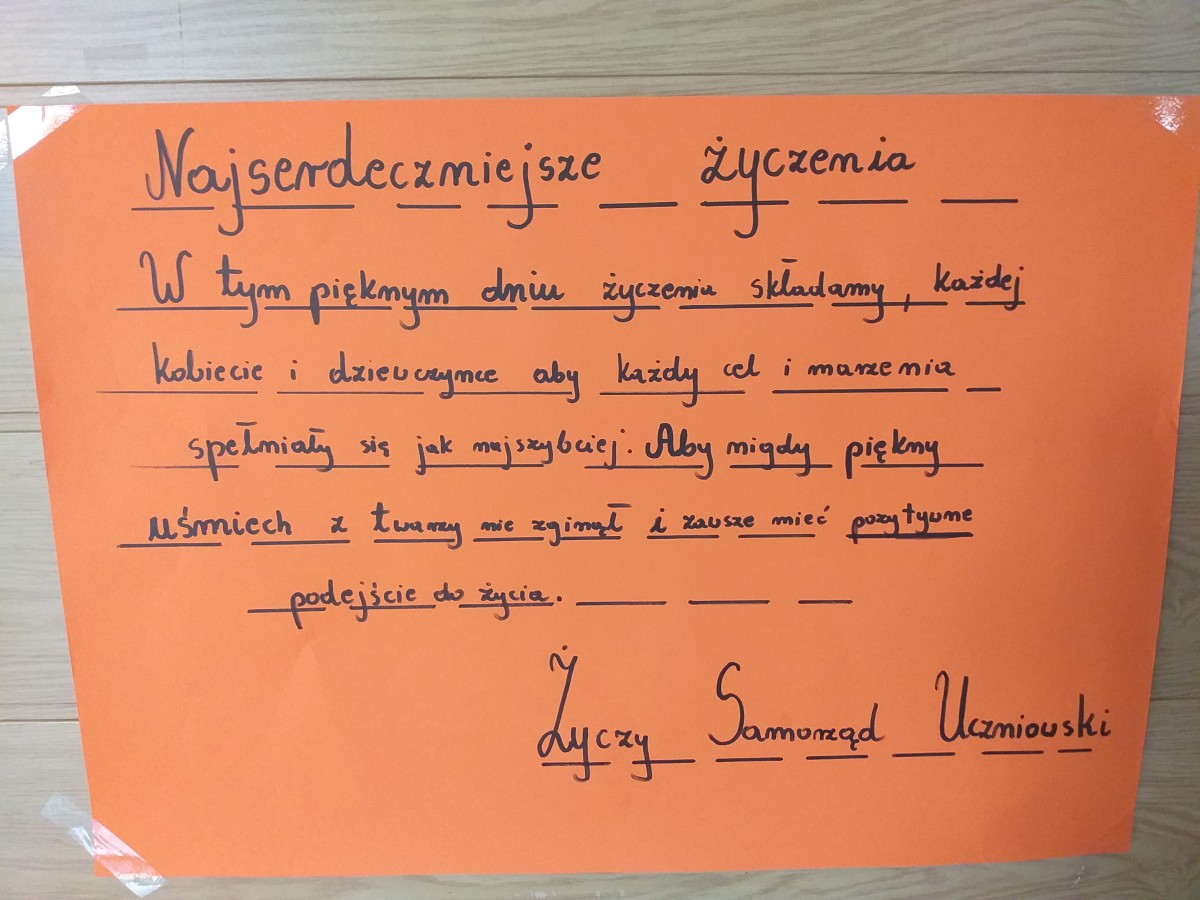 Najserdeczniejsze życzenia
W tym pięknym dniu życzenia składamy, każdej
kobiecie i dziewczynce aby każdy cel i marzenia
spełniały się jak najszybciej. Aby nigdy piękny
uśmiech z twarzy nie zginął i zawsze mieć pozytywne
podejście do życia.
Życzy Samorząd Uczniowski